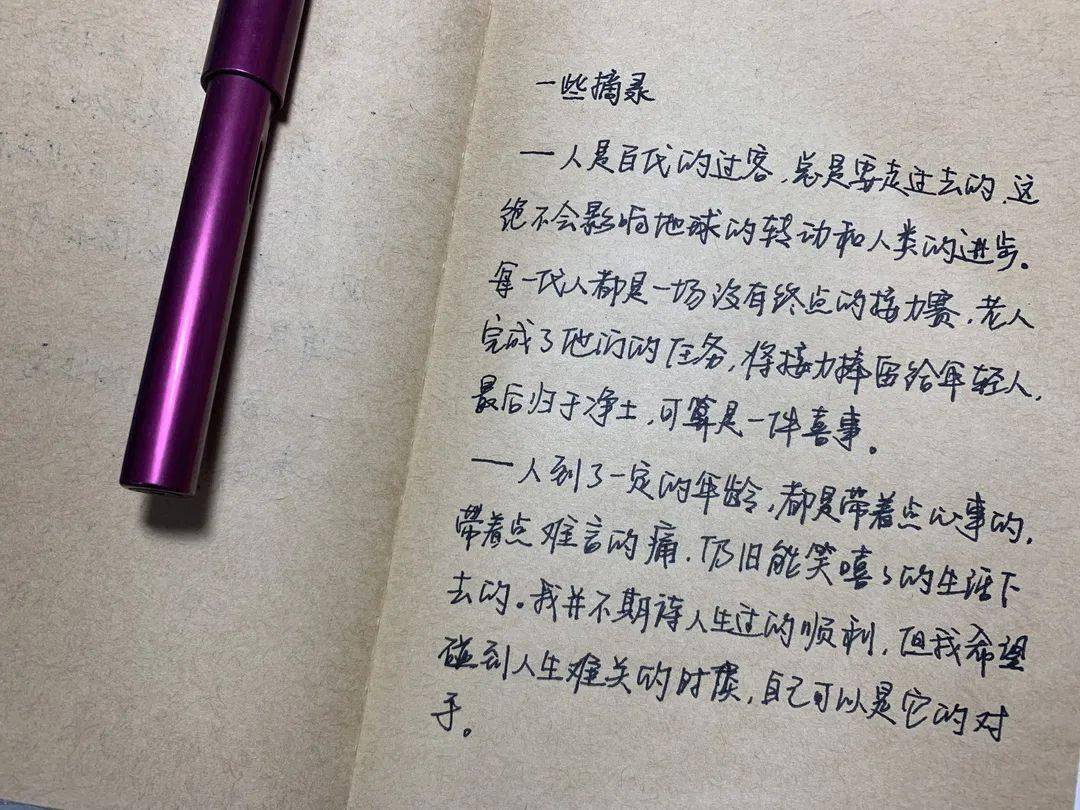 一些摘录
一人是百代的过客，总是要走过去的，这
绝不会影响地球的转动和人类的进步。
每一代人都是一场没有终点的接力赛，老人
完成了他们的任务，将接力捧留给年轻人，
最后归于净土，可算是一件喜事。
一人到了一定的年龄，都是带着点心事的，
带着点难言的痛，仍旧能笑嘻々的生活下
去的。我并不期待人生过的顺利，但我希望
碰到人生难关的时候，自己可以是它的对
手。